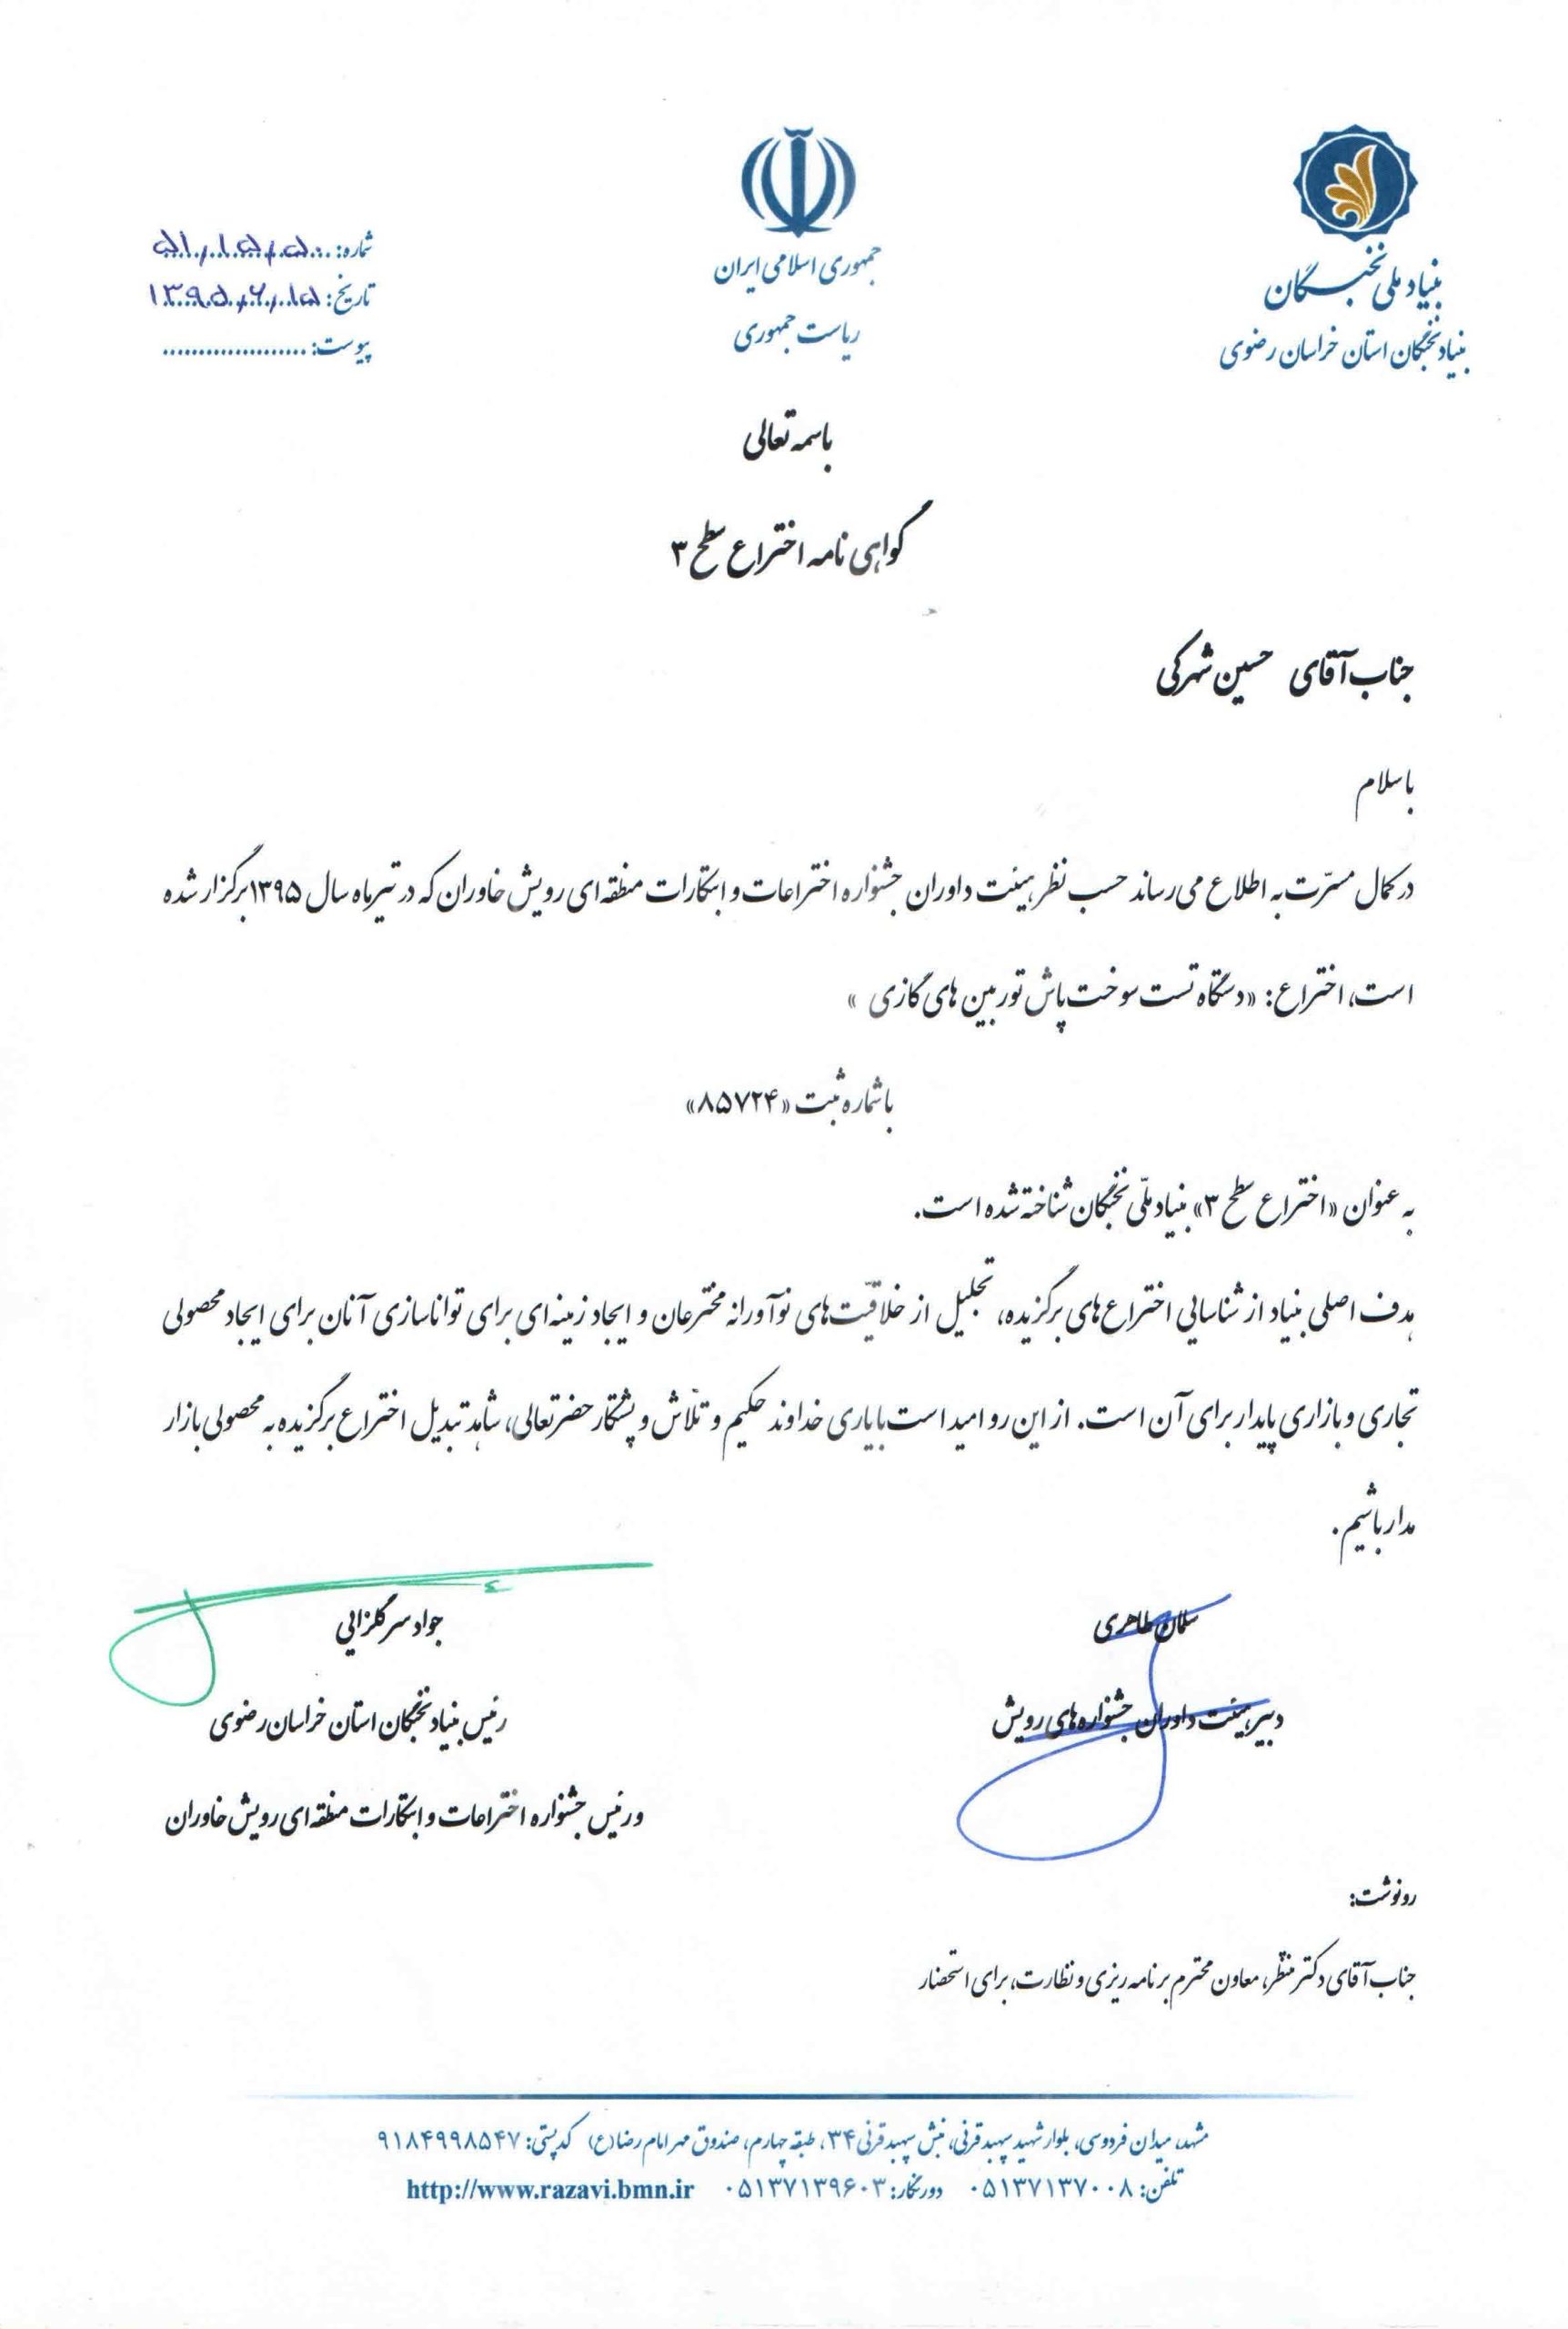 بنیاد ملی نخبگان
بنیاد نخبگان استان خراسان رضوی
جمهوری اسلامی ایران
ریاست جمهوری
شماره:
تاریخ: ۱۳۹۵/۶/۱۵
پیوست: ....................
باسمه تعالی
گواهی نامه اختراع سطح ۳
جناب آقای حسین شهرکی
با سلام
در کمال مسرّت به اطلاع می‌رساند حسب نظر هیئت داوران جشنواره اختراعات و ابتکارات منطقه‌ای رویش خاوران که در تیر ماه سال ۱۳۹۵ برگزار شده
است، اختراع: «دستگاه تست سوخت پاش توربین های گازی »
با شماره ثبت «۸۵۷۲۴»
به عنوان «اختراع سطح ۳» بنیاد ملّی نخبگان شناخته شده است.
هدف اصلی بنیاد از شناسایی اختراع‌های برگزیده، تجلیل از خلاقیّت‌های نوآورانه مخترعان و ایجاد زمینه‌ای برای توانا‌سازی آنان برای ایجاد محصولی
تجاری و بازاری پایدار برای آن است. از این رو امید است با یاری خداوند حکیم و تلاش و پشتکار حضرتعالی، شاهد تبدیل اختراع برگزیده به محصولی بازار
مدار باشیم.
سلمان طاهری
دبیر هیئت داوران جشنواره‌های رویش
جواد سرگلزایی
رئیس بنیاد نخبگان استان خراسان رضوی
و رئیس جشنواره اختراعات و ابتکارات منطقه‌ای رویش خاوران
رونوشت:
جناب آقای دکتر منظّر، معاون محترم برنامه‌ریزی و نظارت، برای استحضار
مشهد، میدان فردوسی، بلوار شهید سپهبد قرنی، نبش سپهبد قرنی ۳۴، طبقه چهارم، صندوق مهر امام رضا (ع) کد پستی: ۹۱۸۴۹۹۸۵۴۷
تلفن: ۰۵۱۳۷۱۳۷۰۰۸ دورنگار: ۰۵۱۳۷۱۳۹۶۰۳ http://www.razavi.bmn.ir